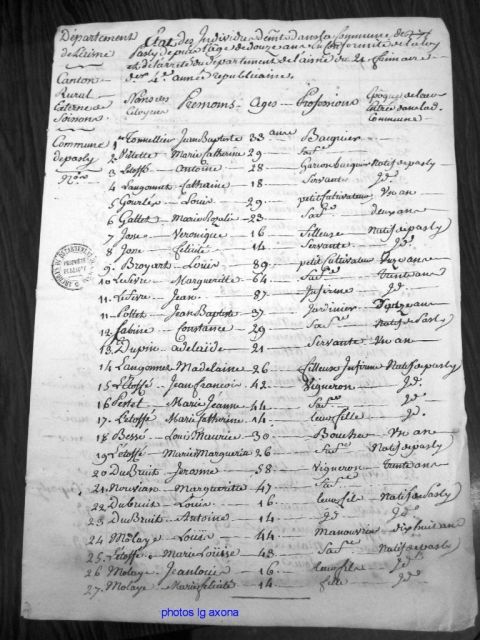 Département de Laisne
Canton Rural Externe de Soissons
Commune de pasly
Etat des Individus dans la Commune de pasly depuis l'age de douze ans en Conformité de la loy et de l'arreté du Département de l'aisne du 21 frimaire 4e année republicaine
Noms des Citoyens Prenoms Ages Professions Epoque de leur entrée dans lad. Commune
1 Tonnellier Jean Baptiste 33 ans
2 Villette Marie Catherine 29 Sa fe
3 Létoffé Antoine 28 Natif de pasly
4 Langonnet Cathraine 18 Servante Jd.
5 Louis 29 petit Cultivateur Un an
6 Gallot Marie Rozali 23 Sa fe deux ans
7 Jone Veronique 16 fileuse Natif de pasly
8 Jone felicité 14 Servante Jd.
9 Broyart Louis 89 petit Cultivateur
10 Lefevre Margueritte 64 Sa fe trente ans
11 Lefevre Jean 87 Infirme Jd.
11 Lottet Jean Baptiste 37 Jardinier
12 Constance 29 Sa fe Natif de Pasly
13 Dupin adelaide 21 Servante Un an
14 Langonnet Madelaine 26 fileuse Infirme Natif de pasly
15 Létoffé Jean francois 42 Vigneron Jd.
16 Marie Jeanne 44 Sa fe Jd.
17 Létoffé Marie Catherine 14 leur fille Jd.
18 Besse Louis Maurice 30 Boucher Un an
19 Létoffé Marie Marguerite 26 Sa fe Natif de pasly
20 Du Bruit Jerome 58 Vigneron trente ans
21 Nouvian Margueritte 47 Sa fe
22 Dubruit Louis 16 leur fils Natif de Pasly
23 Du Bruit Antoine 14 Jd. Jd.
24 Molaye Louis 44 Manouvrier dix huit ans
25 Létoffé Marie Louise 43 Sa fe Natif de pasly
26 Molaye Jean Louis 16 leur fils Jd.
27 Molaye Marie felicité 14 fille Jd.
photos lg axona